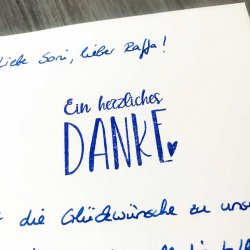 Liebe Soni, lieber Raffa!
Ein herzliches
DANKE
die Glückwünsche zu uns